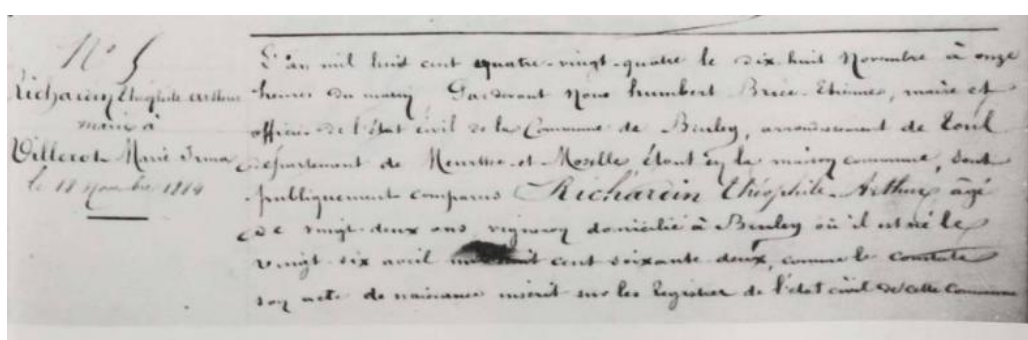 N° 5
Richardin Théophile Arthur
marié à
Villerot Marie Irma
le 18 novembre 1884
L'an mil huit cent quatre-vingt-quatre le dix huit Novembre à onze
heures du matin Pardevant Nous humbert Brice Etienne, maire et
officier de l'état civil de la Commune de Bruley, arrondissement de Toul
département de Meurthe-et-Moselle, étant en la maison commune, sont
publiquement comparus Richardin Théophile-Arthur, âgé
de vingt-deux ans, vigneron domicilié à Bruley où il est né le
vingt-six avril mil huit cent soixante deux, comme le constate
son acte de naissance inscrit sur les Registres de l'état civil de cette Commune